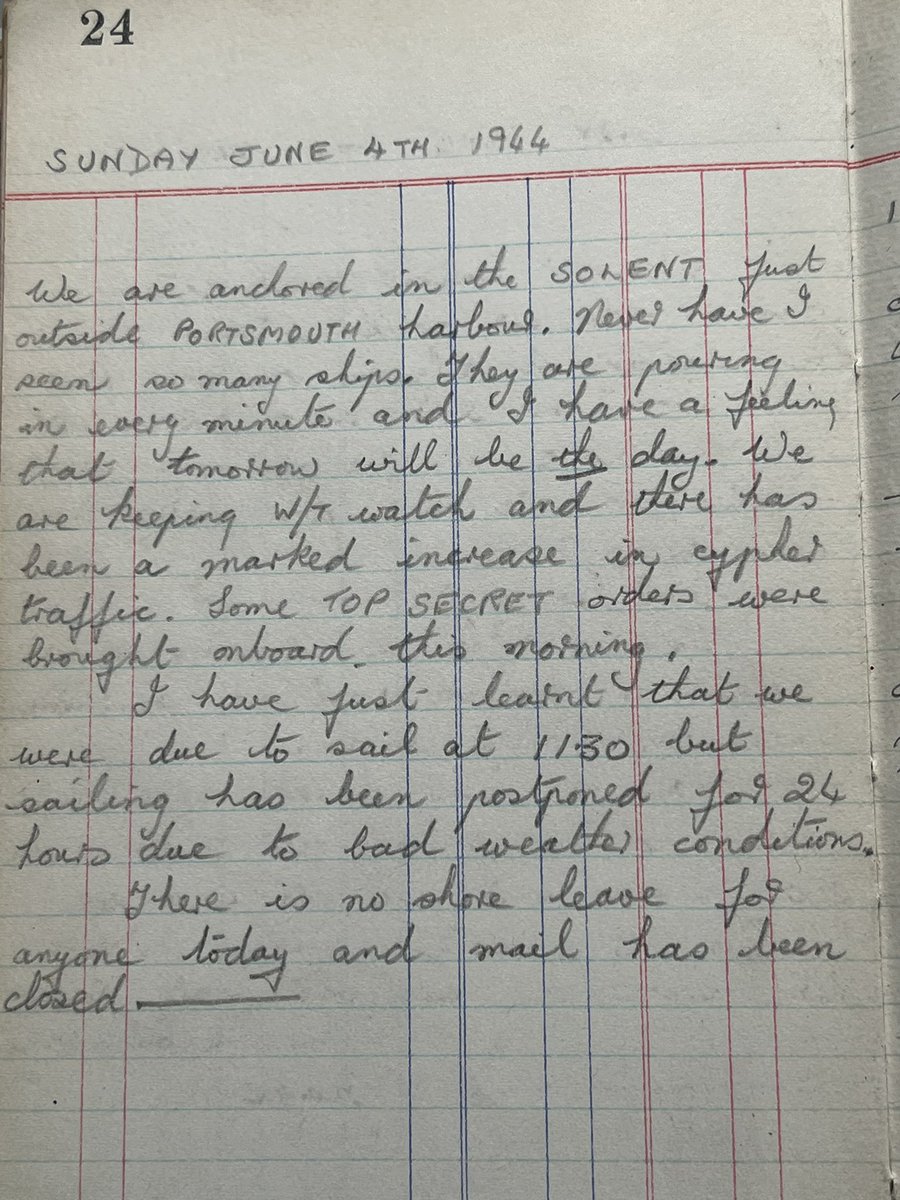 24
SUNDAY JUNE 4TH 1944
We are anchored in the SOLENT just
outside PORTSMOUTH harbour. Never have I
seen so many ships. They are pouring
in every minute and I have a feeling
that tomorrow will be the day. We
are keeping W/T watch and there has
been a marked increase in cypher
traffic. Some TOP SECRET orders were
brought onboard this morning.
I have just learnt that we
were due to sail at 1130 but
sailing has been postponed for 24
hours due to bad weather conditions.
There is no shore leave for
anyone today and mail has been
closed.